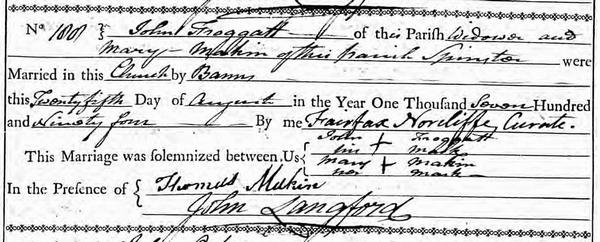 No 1881 { John Froggatt of this Parish Widower and
Mary Makin of this Parish Spinster were
Married in this Church by Banns
this Twenty fifth Day of August in the Year One Thousand Seven Hundred
and Ninety four By me Fairfax Norcliffe Curate.
This Marriage was solemnized between Us { John + Froggatt
his mark
Mary + Makin
her mark
In the Presence of { Thomas Makin
John Langford